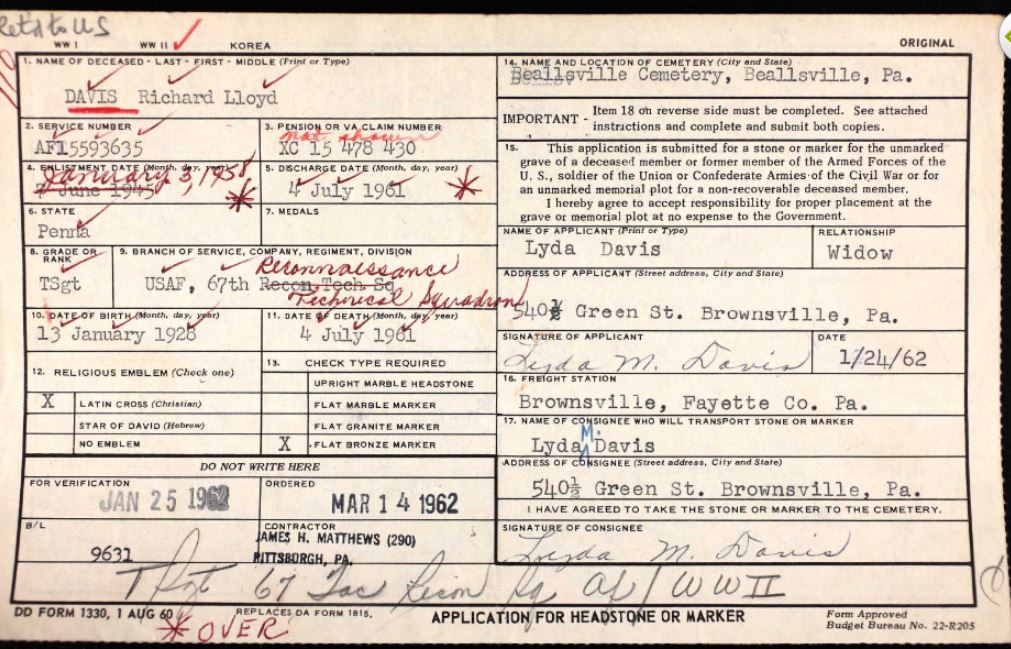 Ret'd to US
WW I WW II ✓ KOREA
ORIGINAL
1. NAME OF DECEASED - LAST - FIRST - MIDDLE (Print or Type)
DAVIS Richard Lloyd
2. SERVICE NUMBER
AF15593635
3. PENSION OR VA CLAIM NUMBER
not shown
XC 15 478 430
4. ENLISTMENT DATE (Month, day, year)
January 3, 1958
7 June 1945
5. DISCHARGE DATE (Month, day, year)
4 July 1961
6. STATE
Penna
7. MEDALS
8. GRADE OR RANK
TSgt
9. BRANCH OF SERVICE, COMPANY, REGIMENT, DIVISION
Reconnaissance
USAF, 67th Recon Tech Sq
Technical Squadron
10. DATE OF BIRTH (Month, day, year)
13 January 1928
11. DATE OF DEATH (Month, day, year)
4 July 1961
12. RELIGIOUS EMBLEM (Check one)
X LATIN CROSS (Christian)
STAR OF DAVID (Hebrew)
NO EMBLEM
13. CHECK TYPE REQUIRED
UPRIGHT MARBLE HEADSTONE
FLAT MARBLE MARKER
FLAT GRANITE MARKER
X FLAT BRONZE MARKER
DO NOT WRITE HERE
FOR VERIFICATION
JAN 25 1962
ORDERED
MAR 14 1962
B/L
9631
CONTRACTOR
JAMES H. MATTHEWS (290)
PITTSBURGH, PA.
14. NAME AND LOCATION OF CEMETERY (City and State)
Beallsville Cemetery, Beallsville, Pa.
IMPORTANT - Item 18 on reverse side must be completed. See attached
instructions and complete and submit both copies.
15. This application is submitted for a stone or marker for the unmarked
grave of a deceased member or former member of the Armed Forces of the
U. S., soldier of the Union or Confederate Armies of the Civil War or for
an unmarked memorial plot for a non-recoverable deceased member.
I hereby agree to accept responsibility for proper placement at the
grave or memorial plot at no expense to the Government.
NAME OF APPLICANT (Print or Type)
Lyda Davis
RELATIONSHIP
Widow
ADDRESS OF APPLICANT (Street address, City and State)
540½ Green St. Brownsville, Pa.
SIGNATURE OF APPLICANT
Lyda M. Davis
DATE
1/24/62
16. FREIGHT STATION
Brownsville, Fayette Co. Pa.
17. NAME OF CONSIGNEE WHO WILL TRANSPORT STONE OR MARKER
Lyda M. Davis
ADDRESS OF CONSIGNEE (Street address, City and State)
540½ Green St. Brownsville, Pa.
I HAVE AGREED TO TAKE THE STONE OR MARKER TO THE CEMETERY.
SIGNATURE OF CONSIGNEE
Lyda M. Davis
T Sgt 67 Tac Recon Sq AF / WW II
DD FORM 1330, 1 AUG 60
REPLACES DA FORM 1815.
* OVER
APPLICATION FOR HEADSTONE OR MARKER
Form Approved
Budget Bureau No. 22-R205